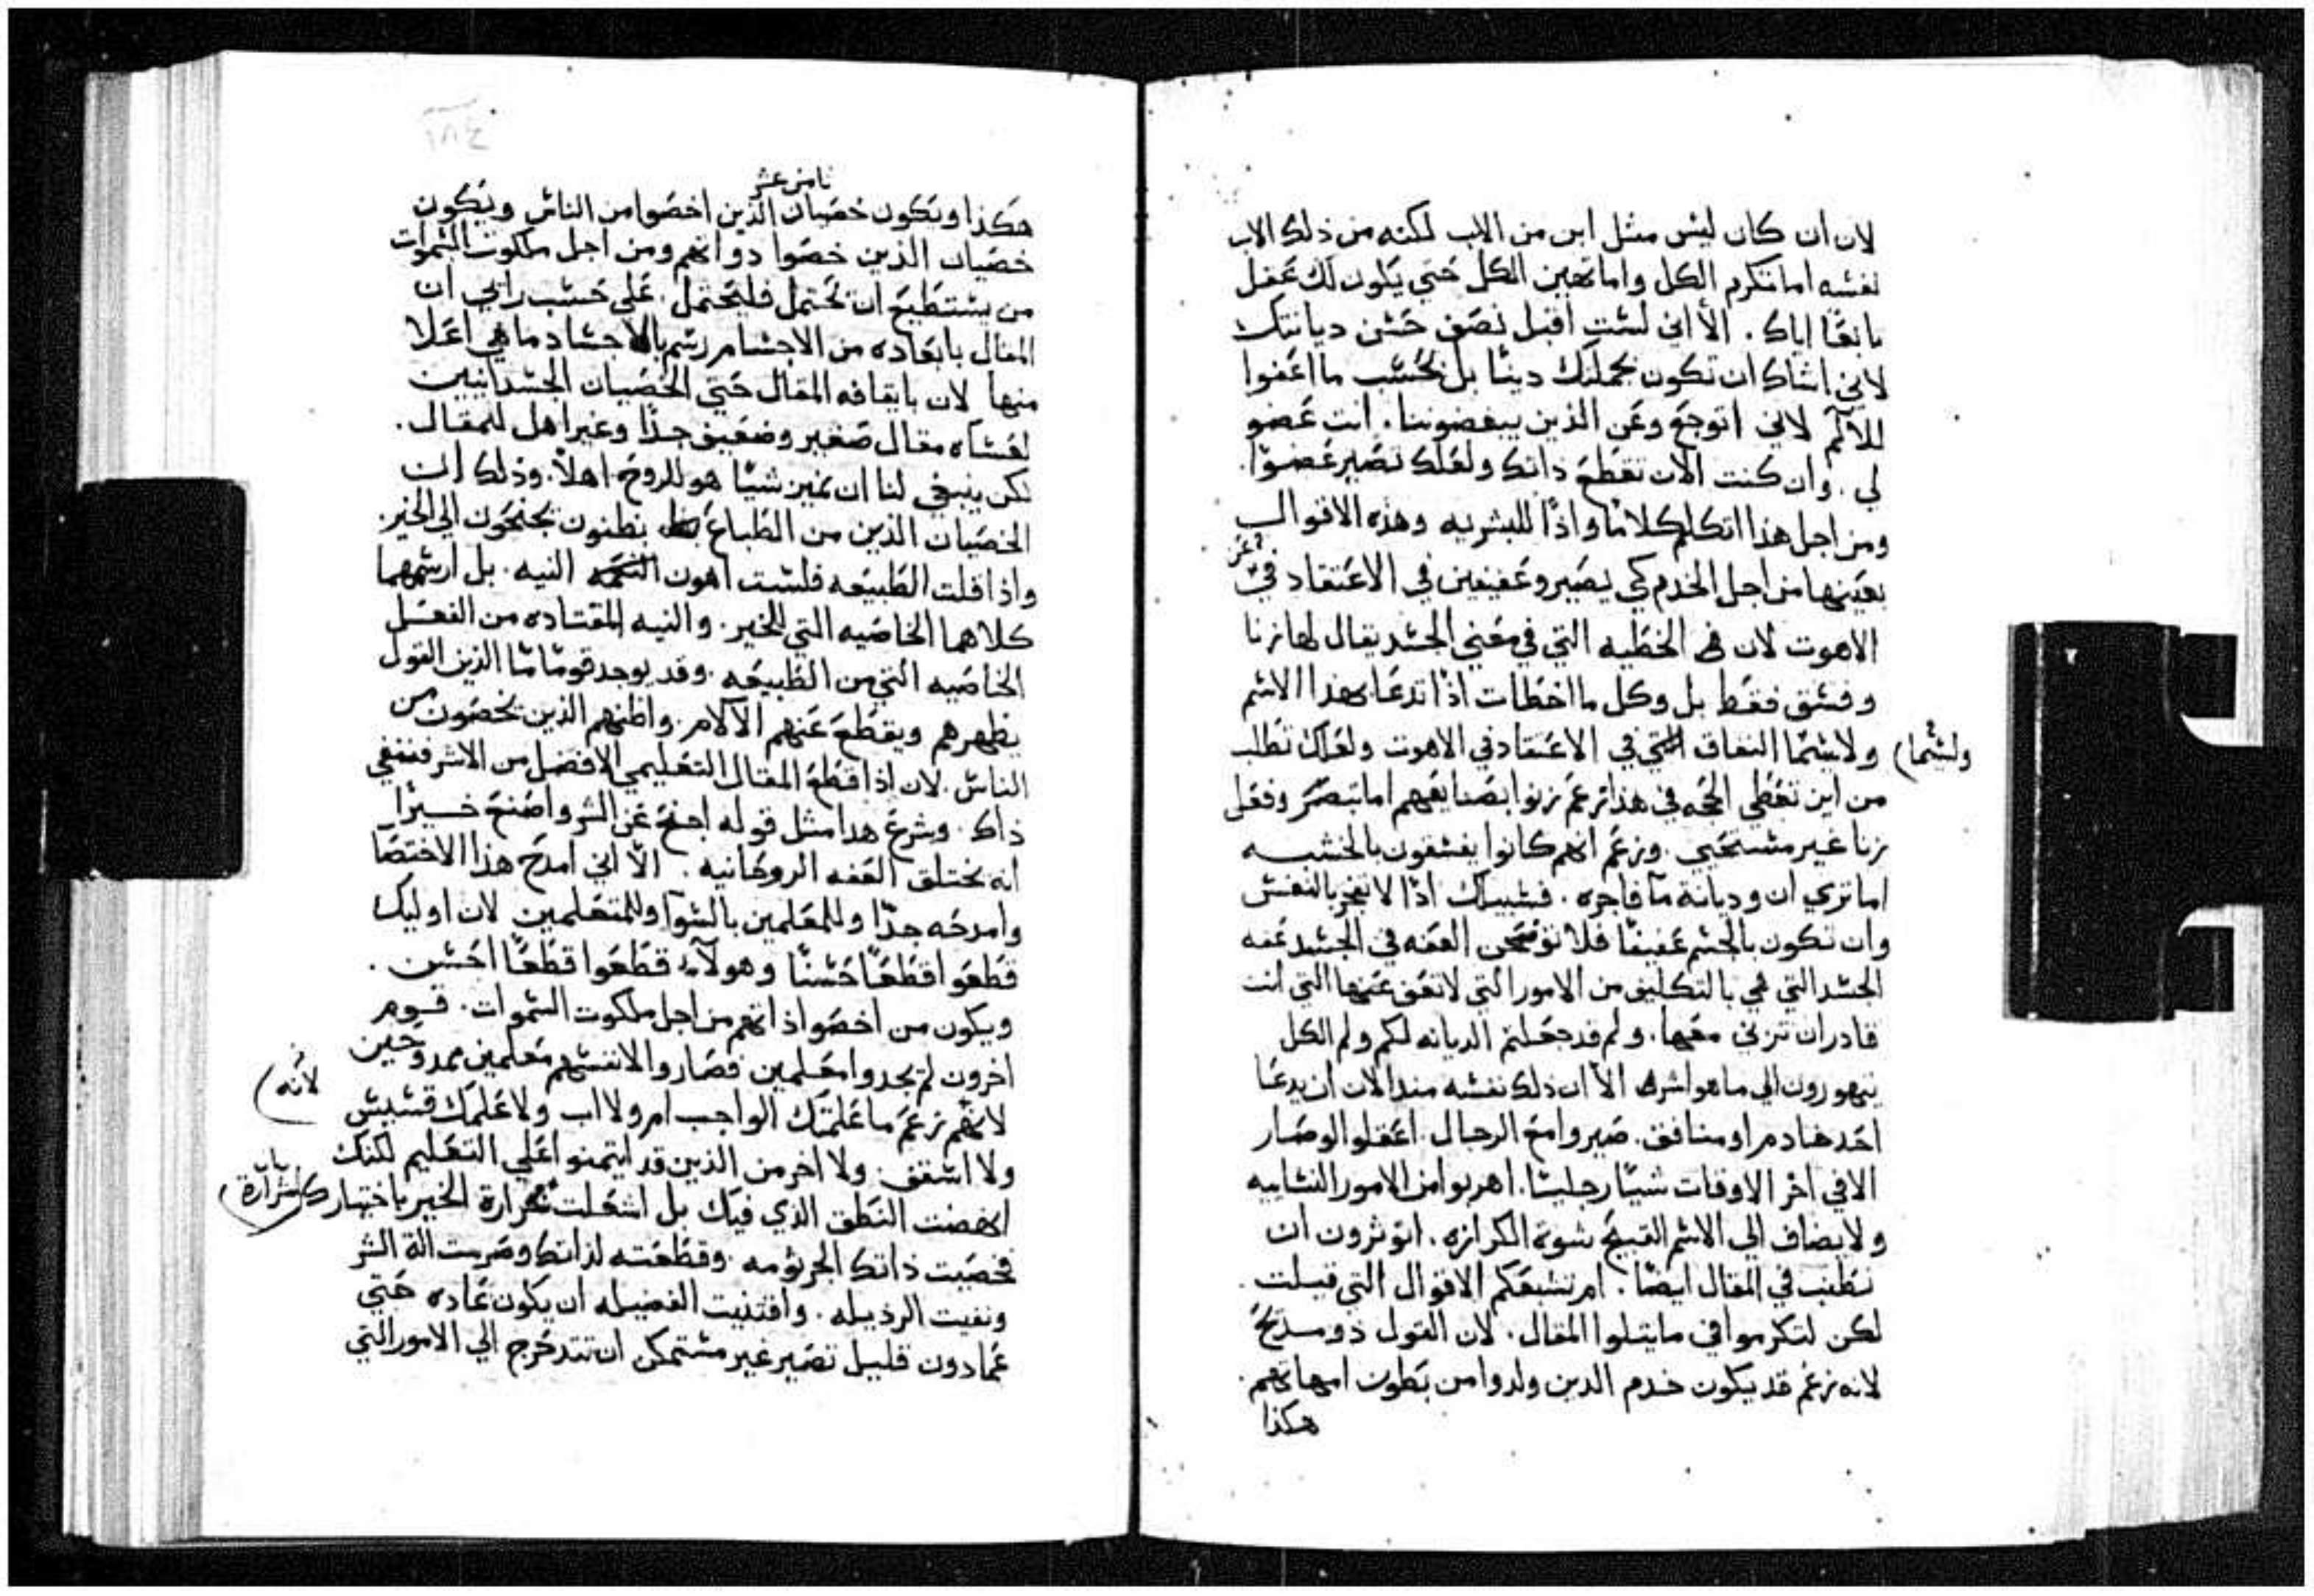 لان ان كان ليس مثل ابن من الاب لكنه من ذلك الاب
نفسه اما تكرم الكل واما تهين الكل حتي يكون لك عقل
اياك . الا اني لست اقبل نصف حسن ديانتك
لاني اشاك ان تكون بجملتك دينا بل بحسب ما اعفوا
للالم لاني اتوجع وعن الذين يبغضوننا . انت عضو
لي . وان كنت الان تقطع ذاتك ولعلك تصير عضوا .
ومن اجل هذا اتكلم كلاما واذا للبشريه وهذه الاقوال
بعينها من اجل الخدم كي يصيروا عفيفين في الاعتقاد في
الاهوت لان في الخطيه التي في معني الجسد يقال لها زنا
وفسق فقط بل وكل ما اخطات اذا تدعا بهذا الاسم
ولاسيما النفاق التي في الاعتقاد في الاهوت ولعلك تطلب
ولسيما
من اين تعطي الحجه في هذا تزعم زنوا بصنايعهم اما تبصر وفعل
زنا غير مستحيي . وزعم انهم كانوا يفسقون بالخشبه
اما تري ان وديانة ما فاجره . فسبيلك اذا لا تفجر بالنفس
وان تكون بالجسم عفيفا فلا توضحن العفه في الجسد عفه
الجسد التي هي بالتكليف من الامور التي لا تعف عنها التي انت
قادر ان تزني معها . ولم قد جعلتم الديانه لكم ولم الكل
يتهورون الي ما هو اشر الا ان ذلك نفسه منذ الان ان يدعا
احد خادم او منافق . صيروا مع الرجال . اعقلوا الوصار
الا في اخر الاوقات شيا رجليا . اهربوا من الامور النسايه
ولا يضاف الي الاسم القبيح سوة الكرازه . اتوثرون ان
نطنب في المقال ايضا . ام تشبعكم الاقوال التي قيلت .
لكن لتكرموا في ما يتلوا المقال . لان القول ذو مديح
لانه زعم قد يكون خدم الذين ولدوا من بطون امهاتهم .
هكذا
١٨٤
ثامن عشر
هكذا ويكون خصيان الذين اخصوا من الناس ويكون
خصيان الذين خصوا ذواتهم ومن اجل ملكوت السموات
من يستطيع ان يحتمل فليحتمل . علي حسب رايي ان
المقال بابعاده من الاجسام رسم بالاجساد ما هي اعلا
منها لان بايقافه المقال حتي الخصيان الجسدانيين
لعساه مقال صغير وضعيف جدا وغير اهل للمقال .
لكن ينبغي لنا ان نميز شيا هو للروح اهلا . وذلك ان
الخصيان الذين من الطباع يظنون يجنحون الي الخير .
واذا قلت الطبيعه فلست اهون النيه . بل ارسمهما
كلاهما الخاصيه التي للخير . والنيه المقتاده من الفعل
الخاصيه التي من الطبيعه . وقد يوجد قوما ما الذين القول
يطهرهم ويقطع عنهم الآلام . واظنهم الذين يخصون من
الناس . لان اذا قطع المقال التعليمي الافضل من الاشر فننفي
ذاك . وشرع هذا مثل قوله اجنح عن الشر واصنع خيرا
انه يختلق العفه الروحانيه . الا اني امدح هذا الاختصا
وامدحه جدا وللمعلمين بالسوا وللمتعلمين لان اوليك
قطعوا قطعا حسنا وهولآء قطعوا قطعا احسن .
ويكون من اخصوا ذاتهم من اجل ملكوت السموات . قوم
اخرون لم يجدوا معلمين فصاروا لانفسهم معلمين ممدوحين
لانهم تزعم ما علمتك الواجب ام ولا اب ولا علمك قسيس
لأنه
ولا اسقف . ولا اخر من الذين قد ايتمنوا علي التعليم لكنك
انهضت النطق الذي فيك بل اشعلت شرارة الخير باختيارك
بشرارة
فخصيت ذاتك الجرثومه . وقطعته لذاتك وضربت الة الشر
ونفيت الرذيله . واقتنيت الفضيله ان يكون عاده حتي
عما دون قليل تصير غير مستمكن ان تتدحرج الي الامور التي